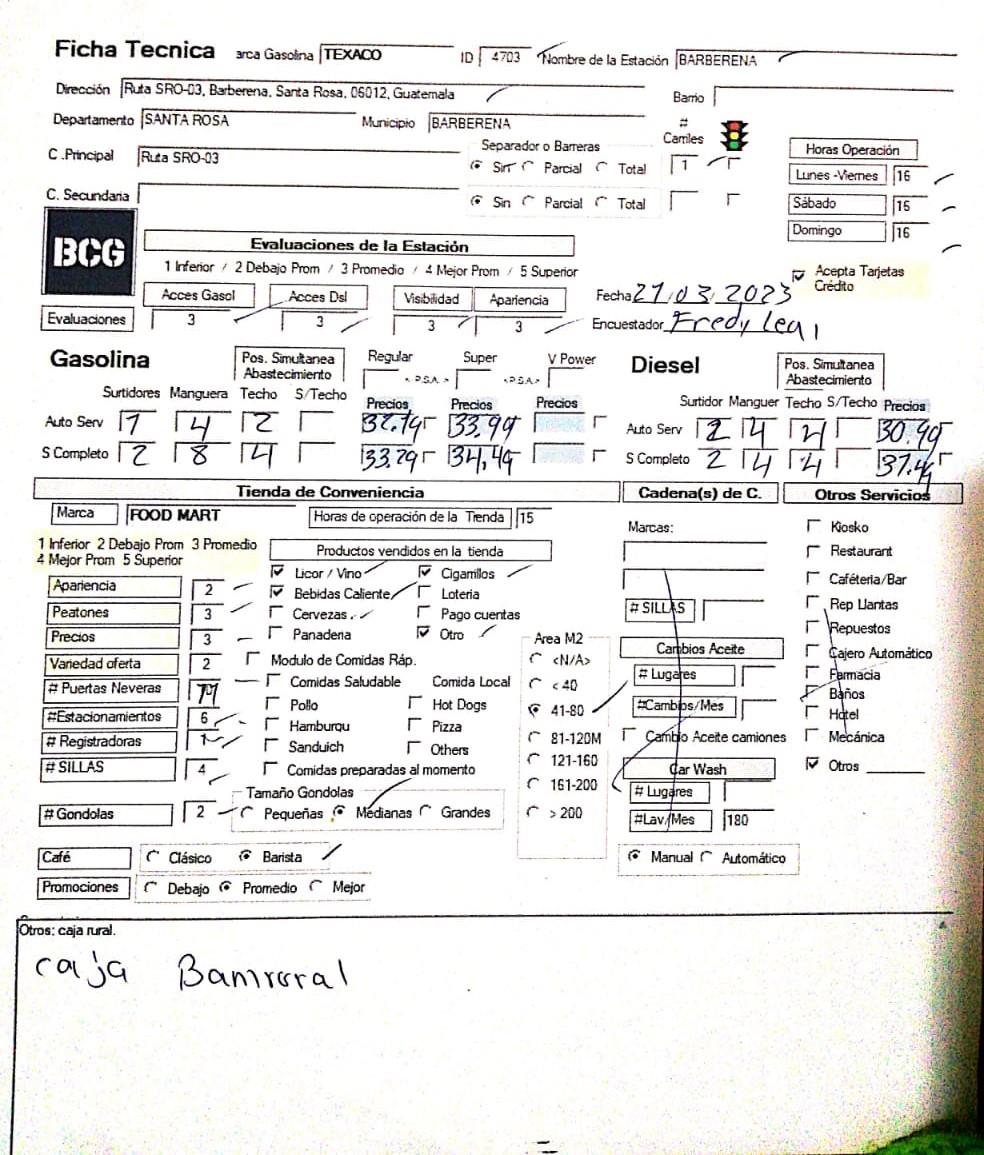 Ficha Tecnica arca Gasolina TEXACO ID 4703 Nombre de la Estación BARBERENA
Dirección Ruta SRO-03, Barberena, Santa Rosa, 06012, Guatemala Barrio
Departamento SANTA ROSA Municipio BARBERENA # Carriles
C .Principal Ruta SRO-03 Separador o Barreras Sin Parcial Total 1
C. Secundaria Sin Parcial Total
Horas Operación
Lunes -Viernes 16
Sábado 16
Domingo 16
BCG
Evaluaciones de la Estación
1 Inferior / 2 Debajo Prom / 3 Promedio / 4 Mejor Prom / 5 Superior
Acepta Tarjetas Crédito
Acces Gasol Acces Dsl Visibilidad Apariencia
Evaluaciones 3 3 3 3
Fecha 27/03/2023
Encuestador Fredy Leal
Gasolina Pos. Simultanea Abastecimiento Regular Super V Power
<.P.S.A.> <.P.S.A.>
Surtidores Manguera Techo S/Techo Precios Precios Precios
Auto Serv 1 4 2 33.99
S Completo 2 8 4 33.29 34.49
Diesel Pos. Simultanea Abastecimiento
Surtidor Manguer Techo S/Techo Precios
Auto Serv 2 4 4 30.99
S Completo 2 4 4
Tienda de Conveniencia
Marca FOOD MART Horas de operación de la Tienda 15
1 Inferior 2 Debajo Prom 3 Promedio
4 Mejor Prom 5 Superior
Apariencia 2
Peatones 3
Precios 3
Variedad oferta 2
# Puertas Neveras
#Estacionamientos 6
# Registradoras 1
# SILLAS 4
# Gondolas 2
Productos vendidos en la tienda
Licor / Vino Cigarrillos
Bebidas Caliente Loteria
Cervezas Pago cuentas
Panaderia Otro
Modulo de Comidas Ráp.
Comidas Saludable Comida Local
Pollo Hot Dogs
Hamburqu Pizza
Sanduich Others
Comidas preparadas al momento
Tamaño Gondolas
Pequeñas Medianas Grandes
Area M2
<N/A>
< 40
41-80
81-120M
121-160
161-200
> 200
Café Clásico Barista
Promociones Debajo Promedio Mejor
Cadena(s) de C.
Marcas:
# SILLAS
Cambios Aceite
# Lugares
#Cambios/Mes
Cambio Aceite camiones
Car Wash
# Lugares
#Lav./Mes 180
Manual Automático
Otros Servicios
Kiosko
Restaurant
Caféteria/Bar
Rep Llantas
Repuestos
Cajero Automático
Farmacia
Baños
Hotel
Mecánica
Otros
Otros: caja rural.
caja Bamrural